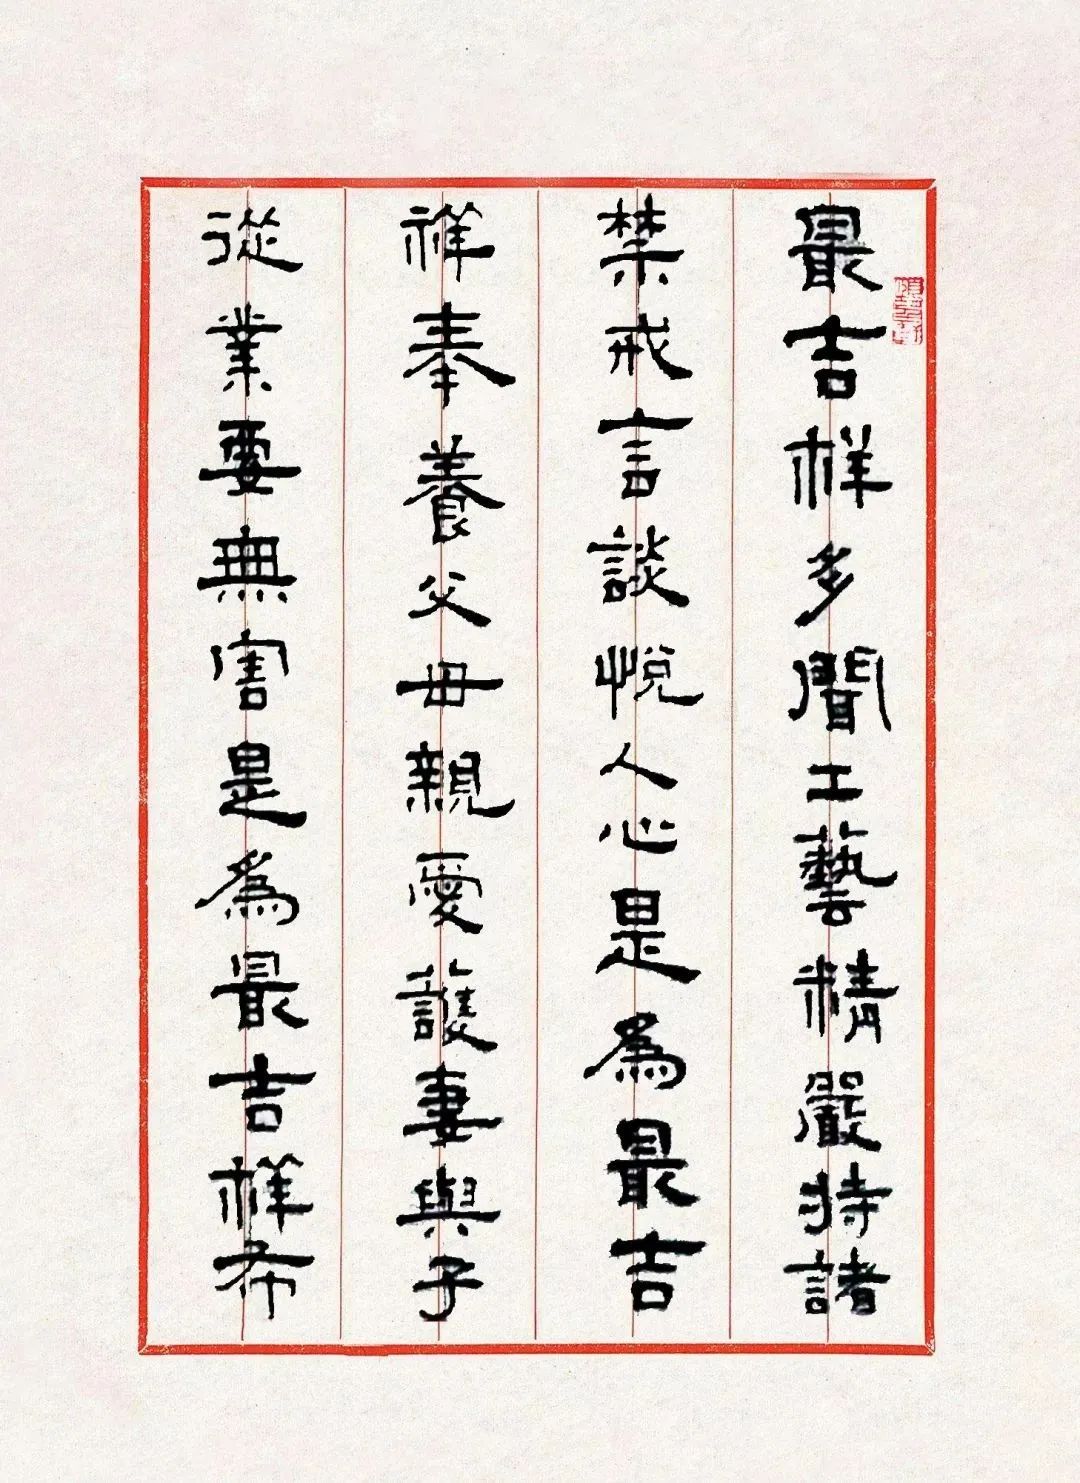 最吉祥多聞工藝精嚴持諸
禁戒言談悅人心是為最吉
祥奉養父母親愛護妻與子
從業要無害是為最吉祥布